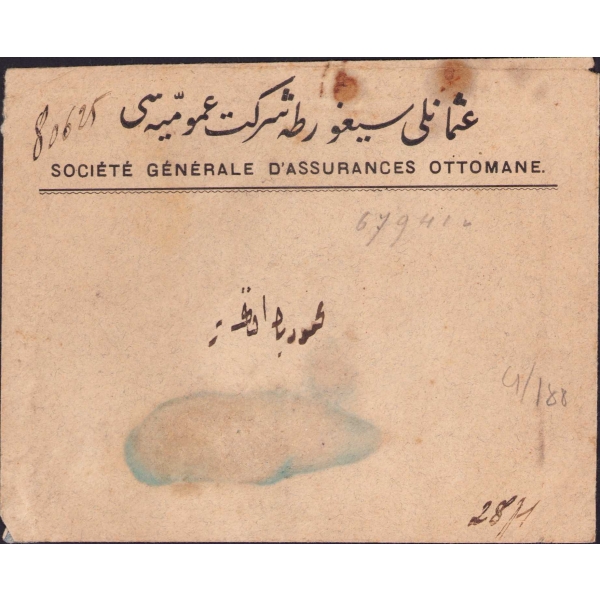 80625
عثمانلی سیغورطه شرکت عمومیّه سی
SOCIÉTÉ GÉNÉRALE D'ASSURANCES OTTOMANE.
67941
محمود